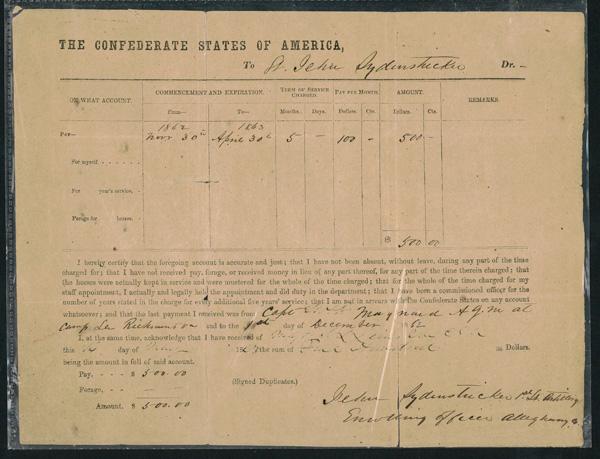 THE CONFEDERATE STATES OF AMERICA,
To Lt. Jehu Sydenstricker Dr.
ON WHAT ACCOUNT. COMMENCEMENT AND EXPIRATION. TERM OF SERVICE CHARGED. PAY PER MONTH. AMOUNT. REMARKS.
From— To— Months. Days. Dollars. Cts. Dollars. Cts.
1862 1863
Pay— Nov 30th April 30th 5 — 100 - 500 -
For myself
For year's service,
Forage for horses.
$ 500.00
I hereby certify that the foregoing account is accurate and just; that I have not been absent, without leave, during any part of the time
charged for; that I have not received pay, forage, or received money in lieu of any part thereof, for any part of the time therein charged; that
the horses were actually kept in service and were mustered for the whole of the time charged; that for the whole of the time charged for my
staff appointment, I actually and legally held the appointment and did duty in the department; that I have been a commissioned officer for the
number of years stated in the charge for every additional five years' service; that I am not in arrears with the Confederate States on any account
whatsoever; and that the last payment I received was from Capt Maynard A.Q.M. at
Camp Lee Richmond and to the day of December 1862
I, at the same time, acknowledge that I have received of
this day of the sum of Five Hundred Dollars.
being the amount in full of said account.
Pay, $ 500.00
Forage,
(Signed Duplicates.)
Amount. $ 500.00
Jehu Sydenstricker 1st Lt. Artillery
Enrolling Officer Alleghany